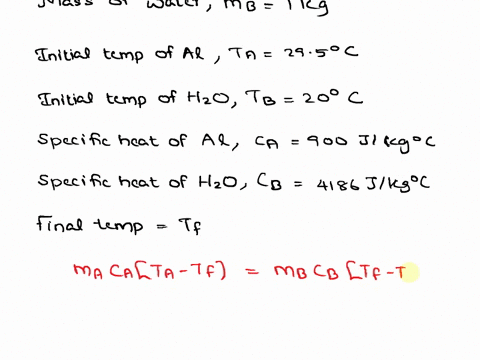 Mass of water, mB = 1 kg
Initial temp of Al, TA = 29.5°C
Initial temp of H2O, TB = 20° C
Specific heat of Al, cA = 900 J/kg°C
Specific heat of H2O, CB = 4186 J/kg°C
Final temp = Tf
mA CA [TA - Tf] = mB CB [Tf - T